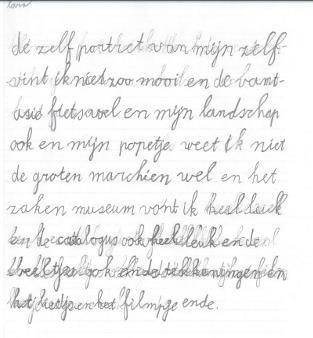 Lara
de zelf portret van mijn zelf
vint ik niet zoo mooi en de vant-
asie fietsavel en mijn landschap
ook en mijn popetje weet ik niet
de groten marchien wel en het
zaken museum vont ik heel leuk
en de catalogus ook heel leuk en de
beeltjes ook en de tekkeningen en
het liedje en het filmpge ende.